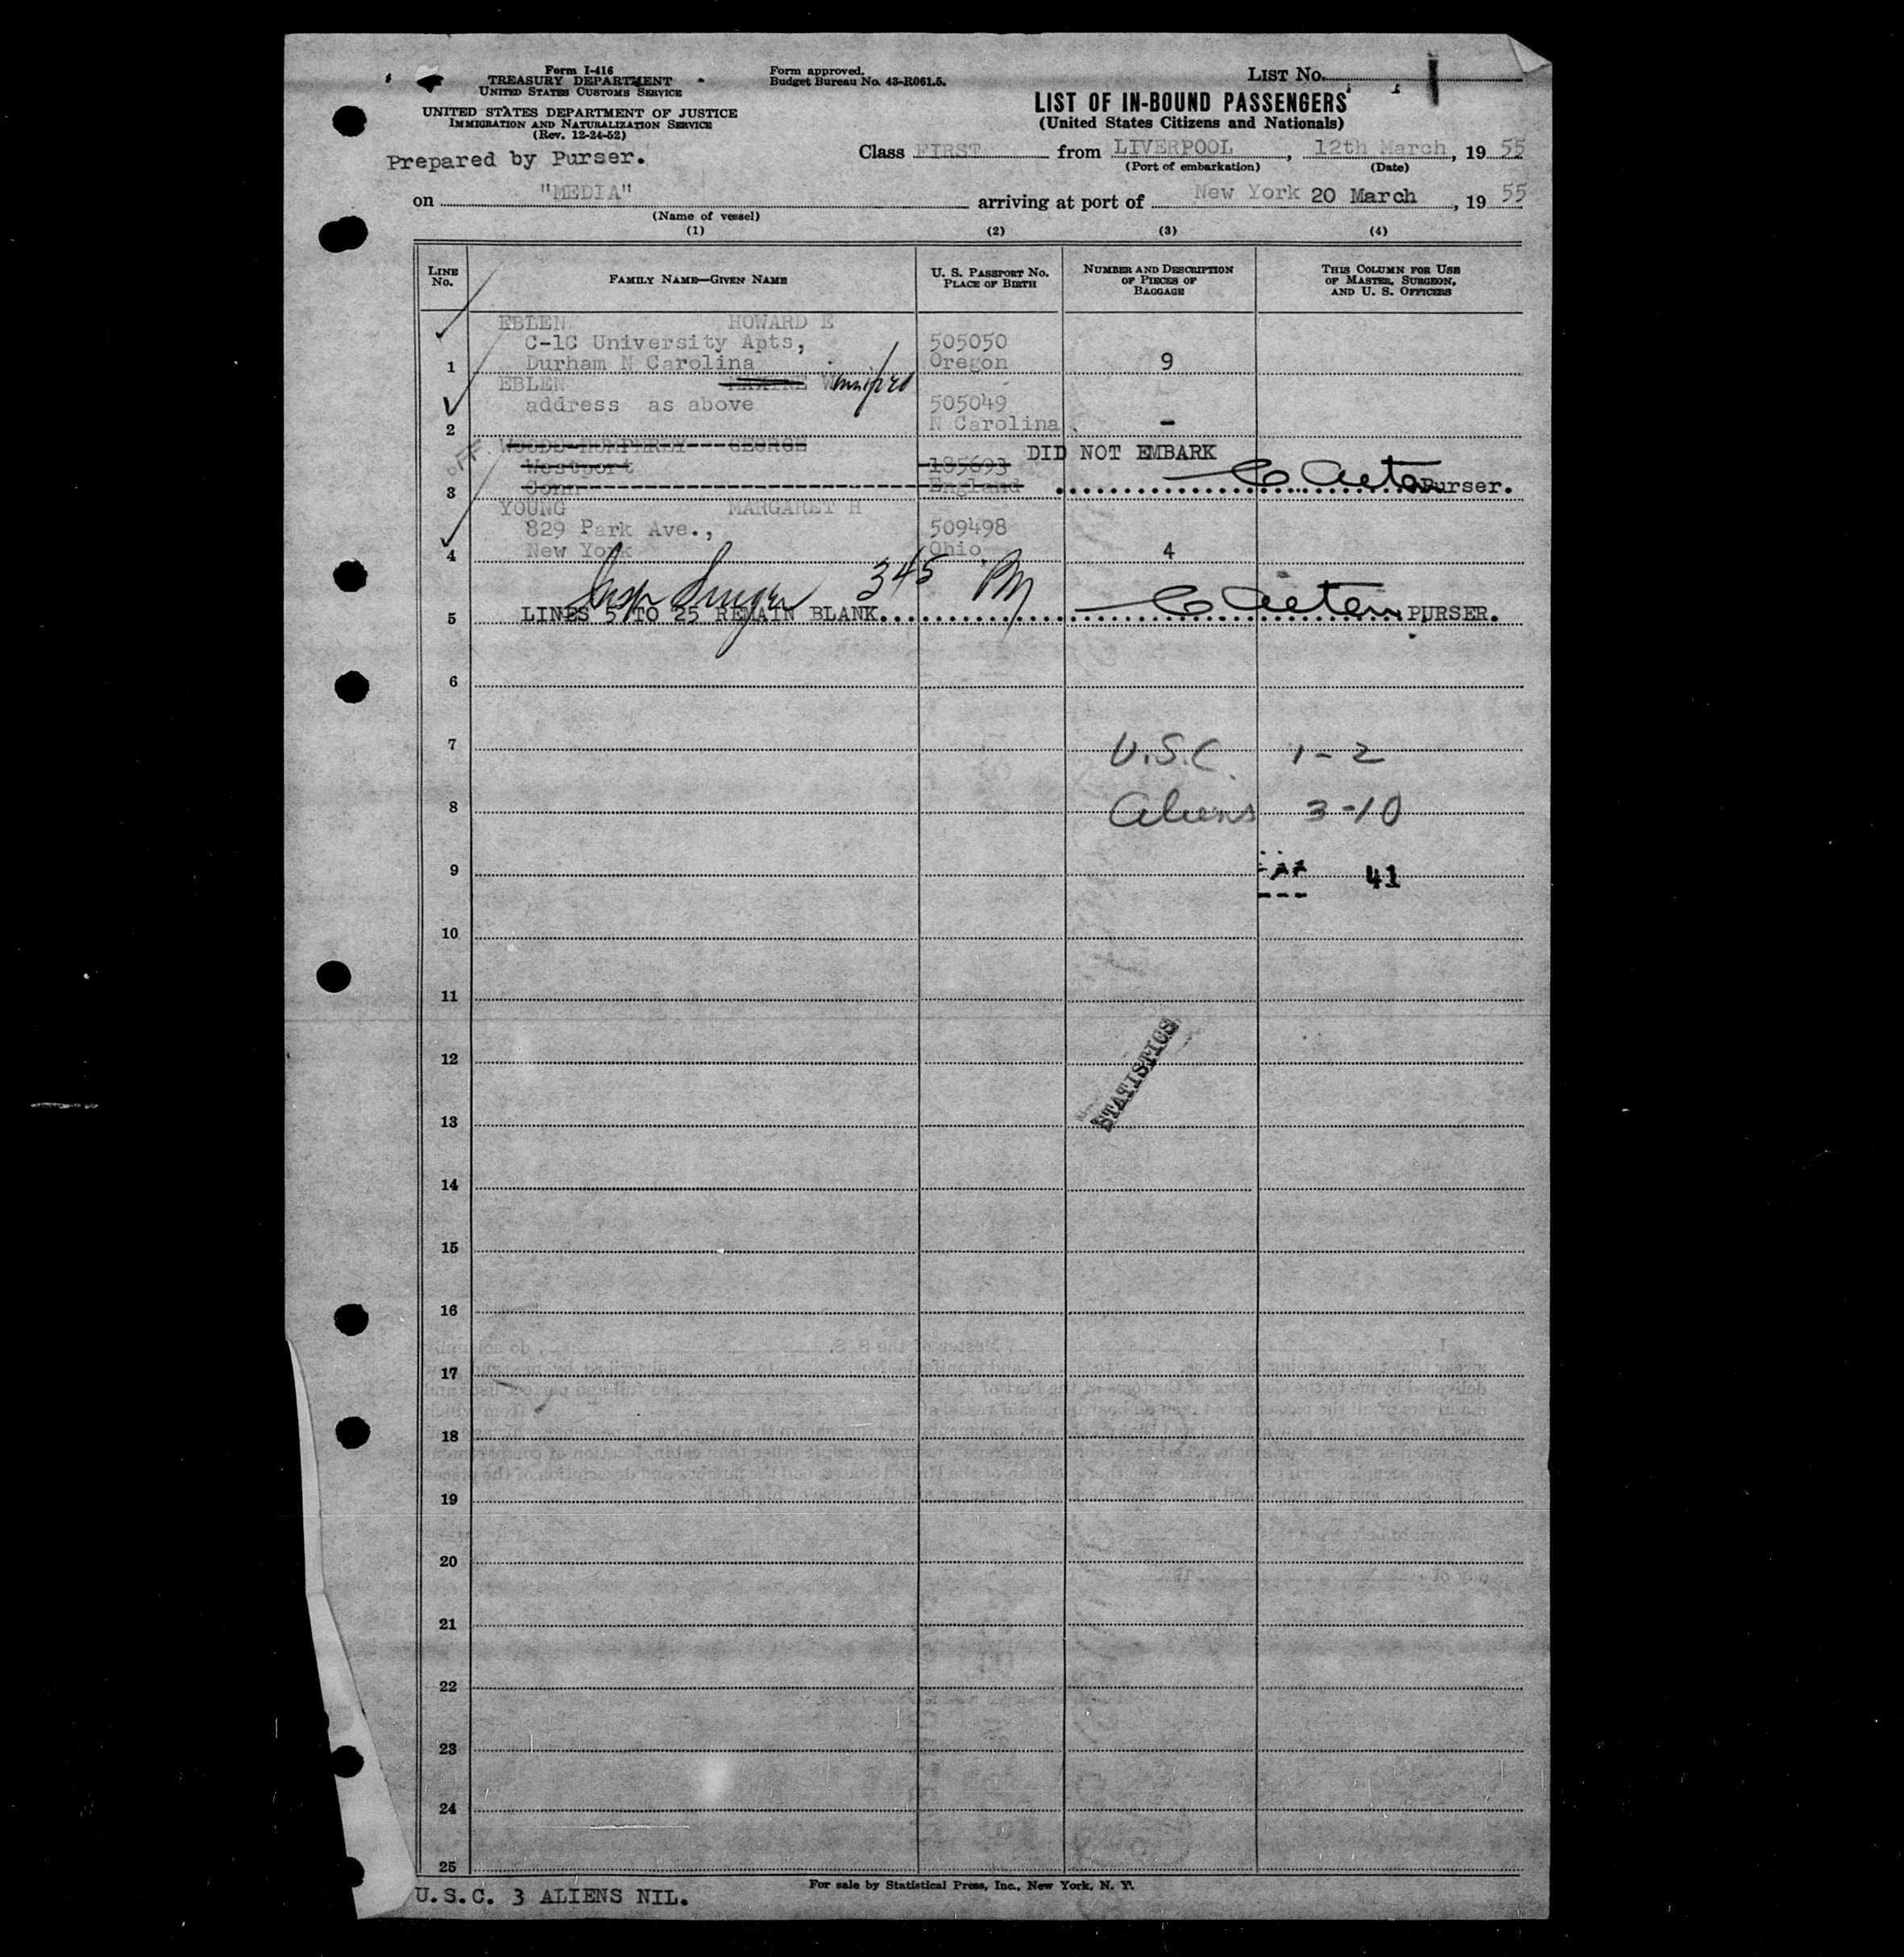 Form I-416
TREASURY DEPARTMENT
UNITED STATES CUSTOMS SERVICE
UNITED STATES DEPARTMENT OF JUSTICE
IMMIGRATION AND NATURALIZATION SERVICE
(Rev. 12-24-52)
Prepared by Purser.
Form approved.
Budget Bureau No. 43-R061.5.
LIST No.
LIST OF IN-BOUND PASSENGERS
(United States Citizens and Nationals)
Class FIRST from LIVERPOOL, 12th March, 19 55
(Port of embarkation) (Date)
on "MEDIA" arriving at port of New York 20 March, 19 55
(Name of vessel)
(1) (2) (3) (4)
LINE No. FAMILY NAME—GIVEN NAME U. S. PASSPORT No. PLACE OF BIRTH NUMBER AND DESCRIPTION OF PIECES OF BAGGAGE THIS COLUMN FOR USE OF MASTER, SURGEON, AND U. S. OFFICERS
EBLEN HOWARD E
C-1C University Apts, 505050
1 Durham N Carolina Oregon 9
EBLEN MAXINE W Winnifred
address as above 505049
2 N Carolina -
off WOODS-HUMPHREY GEORGE DID NOT EMBARK
Westport 185693
3 Conn England Purser.
YOUNG MARGARET H
829 Park Ave., 509498
4 New York Ohio 4
Insp Singer 345 PM
5 LINES 5 TO 25 REMAIN BLANK. PURSER.
6
7 U.S.C. 1-2
8 Aliens 3-10
9 41
10
11
12
STATISTICS
13
14
15
16
17
18
19
20
21
22
23
24
25
For sale by Statistical Press, Inc., New York, N. Y.
U.S.C. 3 ALIENS NIL.